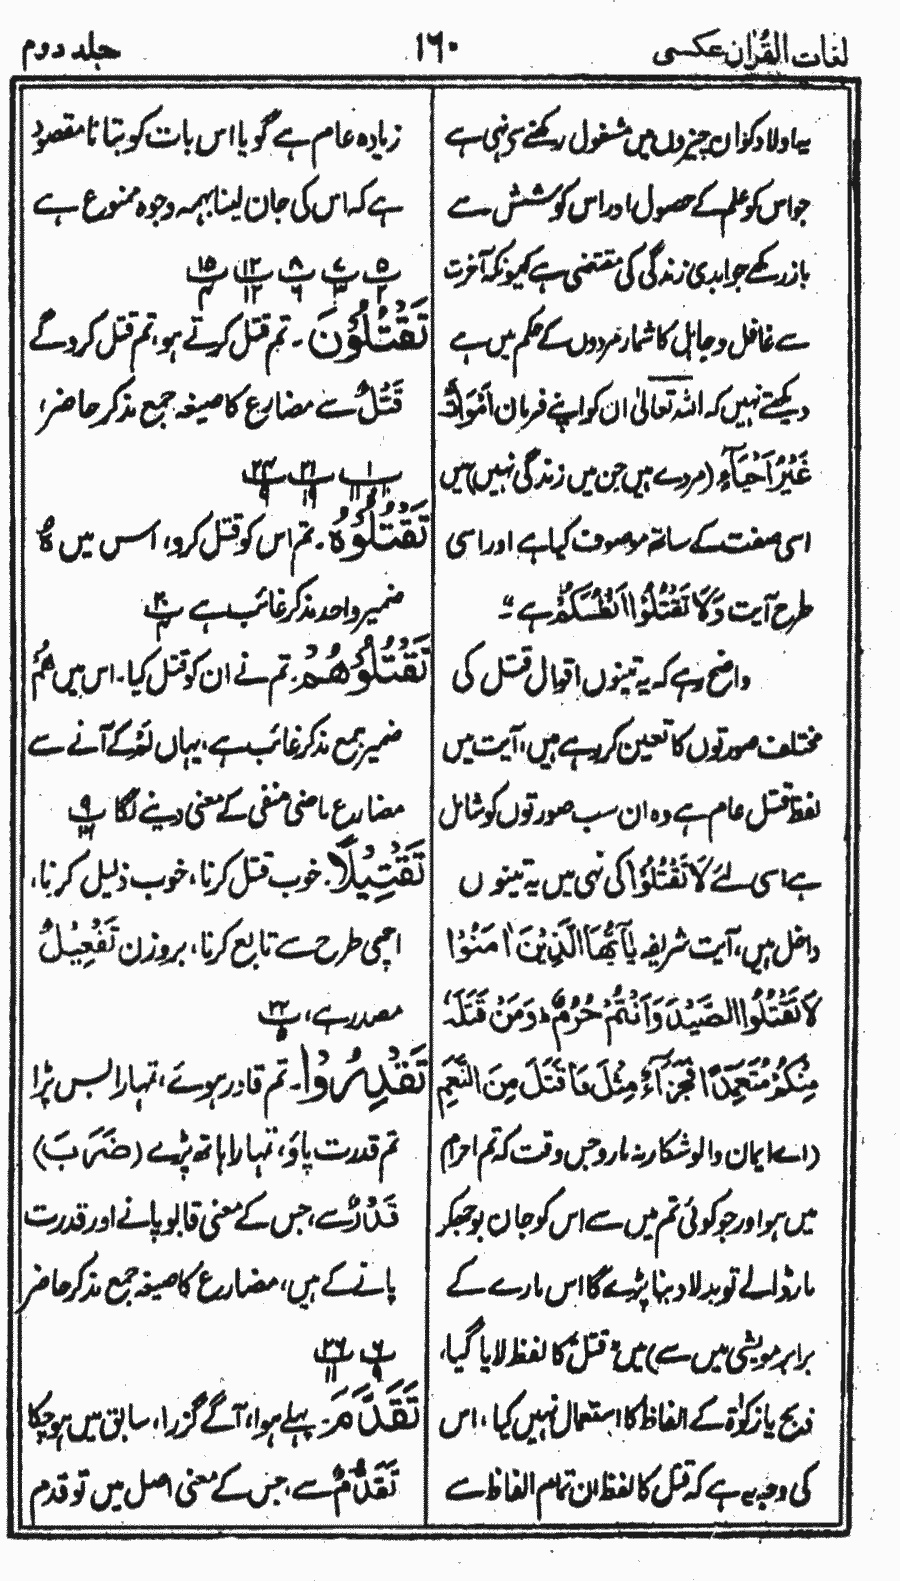 لغات القرآن عکسی
۱۶۰
جلد دوم
یہ اولاد کو ان چیزوں میں مشغول رکھنے سے نہی ہے
جو اس کو علم کے حصول اور اس کو کوشش سے
باز رکھے جو ابدی زندگی کی مقتضی ہے کیونکہ آخرت
سے غافل و جاہل کا شمار مردوں کے حکم میں ہے
دیکھتے نہیں کہ اللہ تعالیٰ ان کو اپنے فرمان اَمْوَاتٌ
غَیْرُ اَحْیَآءٍ (مردے ہیں جن میں زندگی نہیں) میں
اسی صفت کے ساتھ موصوف کیا ہے اور اسی
طرح آیت وَلَا تَقْتُلُوْا اَنْفُسَکُمْ ہے
واضح رہے کہ یہ تینوں اقوال قتل کی
مختلف صورتوں کا تعین کر رہے ہیں، آیت میں
لفظ قتل عام ہے وہ ان سب صورتوں کو شامل
ہے اسی لئے لَا تَقْتُلُوْا کی نہی میں یہ تینوں
داخل ہیں، آیت شریفہ یٰۤاَیُّهَا الَّذِیْنَ اٰمَنُوْا
لَا تَقْتُلُوا الصَّیْدَ وَاَنْتُمْ حُرُمٌ ؕ وَمَنْ قَتَلَهٗ
مِنْکُمْ مُّتَعَمِّدًا فَجَزَآءٌ مِّثْلُ مَا قَتَلَ مِنَ النَّعَمِ
(اے ایمان والو شکار نہ مارو جس وقت کہ تم احرام
میں ہو اور جو کوئی تم میں سے اس کو جان بوجھ کر
مار ڈالے تو بدلا دینا پڑے گا اس مارے کے
برابر مویشی میں سے) میں "قتل" کا لفظ لایا گیا،
ذبح یا زکوٰۃ کے الفاظ کا استعمال نہیں کیا، اس
کی وجہ یہ ہے کہ قتل کا لفظ ان تمام الفاظ سے
زیادہ عام ہے گویا اس بات کو بتانا مقصود
ہے کہ اس کی جان لینا بہمہ وجوہ ممنوع ہے
۵/۲ ۷/۳ ۸/۶ ۱۲/۱۲ ۱۵/۴
تَقْتُلُوْنَ۔ تم قتل کرتے ہو، تم قتل کرو گے
قَتْلٌ سے مضارع کا صیغہ جمع مذکر حاضر،
تَقْتُلُوْهُ۔ تم اس کو قتل کرو، اس میں هُ
ضمیر واحد مذکر غائب ہے
تَقْتُلُوْهُمْ۔ تم نے ان کو قتل کیا۔ اس میں هُمْ
ضمیر جمع مذکر غائب ہے، یہاں لَمْ کے آنے سے
مضارع ماضی منفی کے معنی دینے لگا
تَقْتِیْلًا۔ خوب قتل کرنا، خوب ذلیل کرنا،
اچھی طرح سے تابع کرنا، بروزن تَفْعِیْلٌ
مصدر ہے، ۲۲/۵
تَقْدِرُوْا۔ تم قادر ہوئے، تمہارا بس پڑا
تم قدرت پاؤ، تمہارا ہاتھ پڑے (ضَرَبَ)
قَدْرٌ سے، جس کے معنی قابو پانے اور قدرت
پانے کے ہیں، مضارع کا صیغہ جمع مذکر حاضر
تَقَدَّمَ۔ پہلے ہوا، آگے گزرا، سابق میں ہو چکا
تَقَدُّمٌ سے، جس کے معنی اصل میں تو قدم